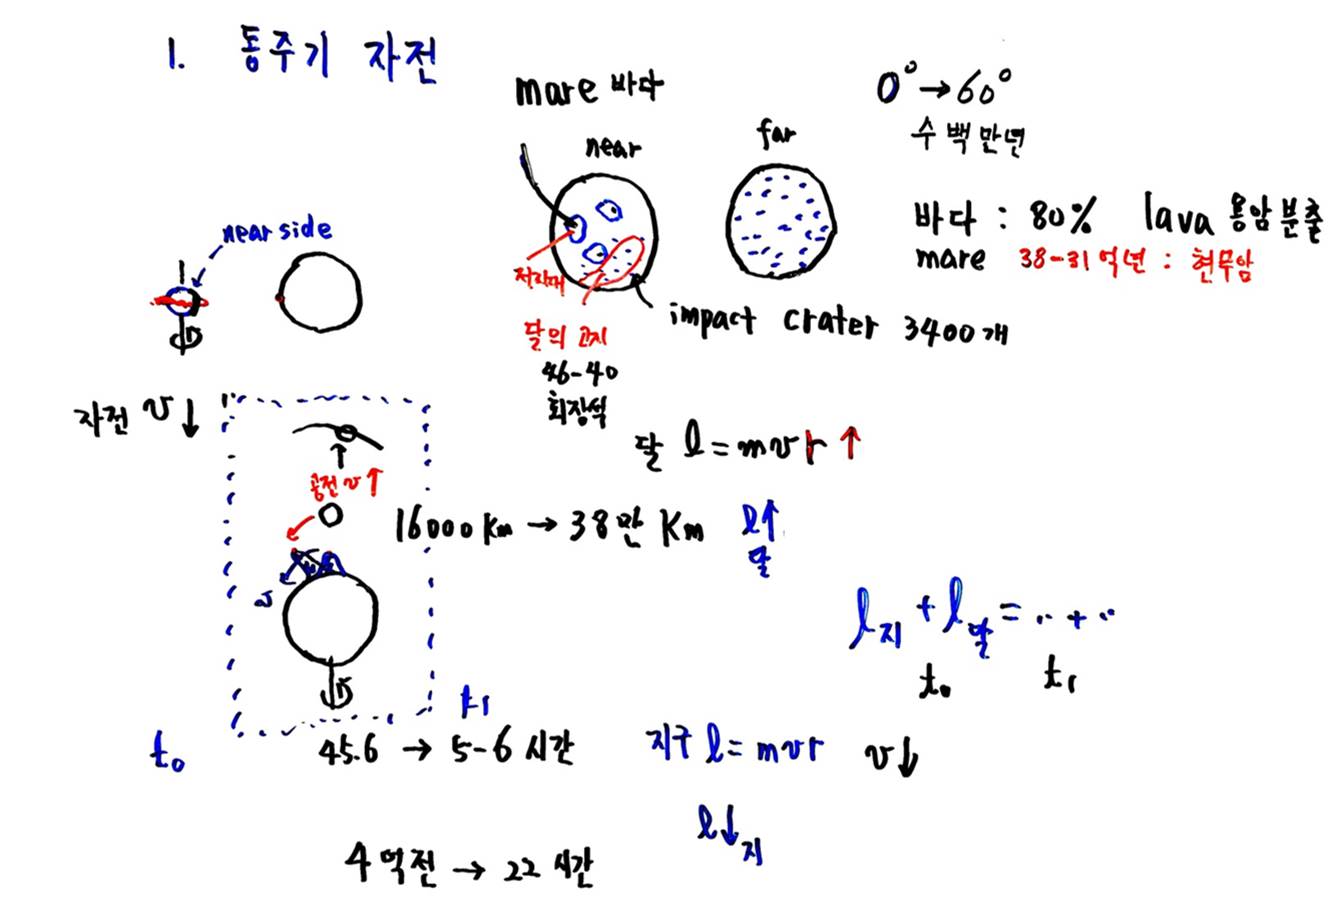 1. 동주기 자전
mare 바다
near
far
0° → 60°
수 백만년
바다 : 80% lava 용암분출
mare 38-31억년 : 현무암
near side
저지대
impact crater 3400개
달의 고지
46-40
회장석
자전 v↓
달 l = mvr ↑
공전 v↑
16000 Km → 38만 Km l↑
달
l지 + l달 = .. + ..
t₀ t₁
t₁
t₀ 45.6 → 5-6 시간 지구 l = mvr v↓
l↓지
4억전 → 22 시간